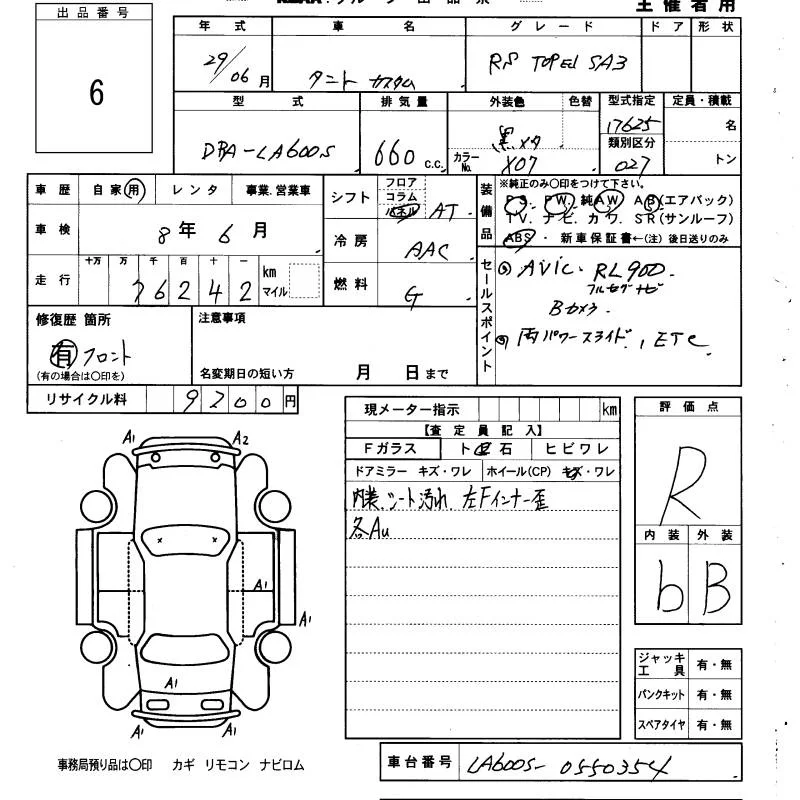 出品番号
6
主催者用
年式 車名 グレード ドア 形状
29/06月 タント カスタム RS TOPED SA3
型式 排気量 外装色 色替 型式指定 定員・積載
DBA-LA600S 660 c.c. 黒メタ 17625 名
カラーNo. X07 類別区分 027 トン
車歴 自家用 レンタ 事業・営業車
シフト フロア コラム パネル AT
車検 8年 6月
冷房 AAC
走行 十万 万 千 百 十 一 km マイル
76242
燃料 G
装備品 ※純正のみ○印をつけて下さい。
PS. PW. 純AW. AB(エアバック)
TV. ナビ. カワ. SR(サンルーフ)
ABS・ 新車保証書←(注)後日送りのみ
セールスポイント
◎ AVIC. RL900.
フルセグナビ
Bカメラ
◎ 両パワースライド., ETC
修復歴 箇所
有 フロント
(有の場合は○印を)
注意事項
名変期日の短い方 月 日まで
リサイクル料 9200円
現メーター指示 km
【査定員記入】
Fガラス ト 石 ヒビワレ
ドアミラー キズ・ワレ ホイール(CP) キズ・ワレ
内装.シート汚れ 左Fインナー歪
各Au
評価点
R
内装 外装
b B
A1 A2
A1
A1
A1
A1 A1
ジャッキ 工具 有・無
パンクキット 有・無
スペアタイヤ 有・無
事務局預り品は○印 カギ リモコン ナビロム
車台番号 LA600S-0550354